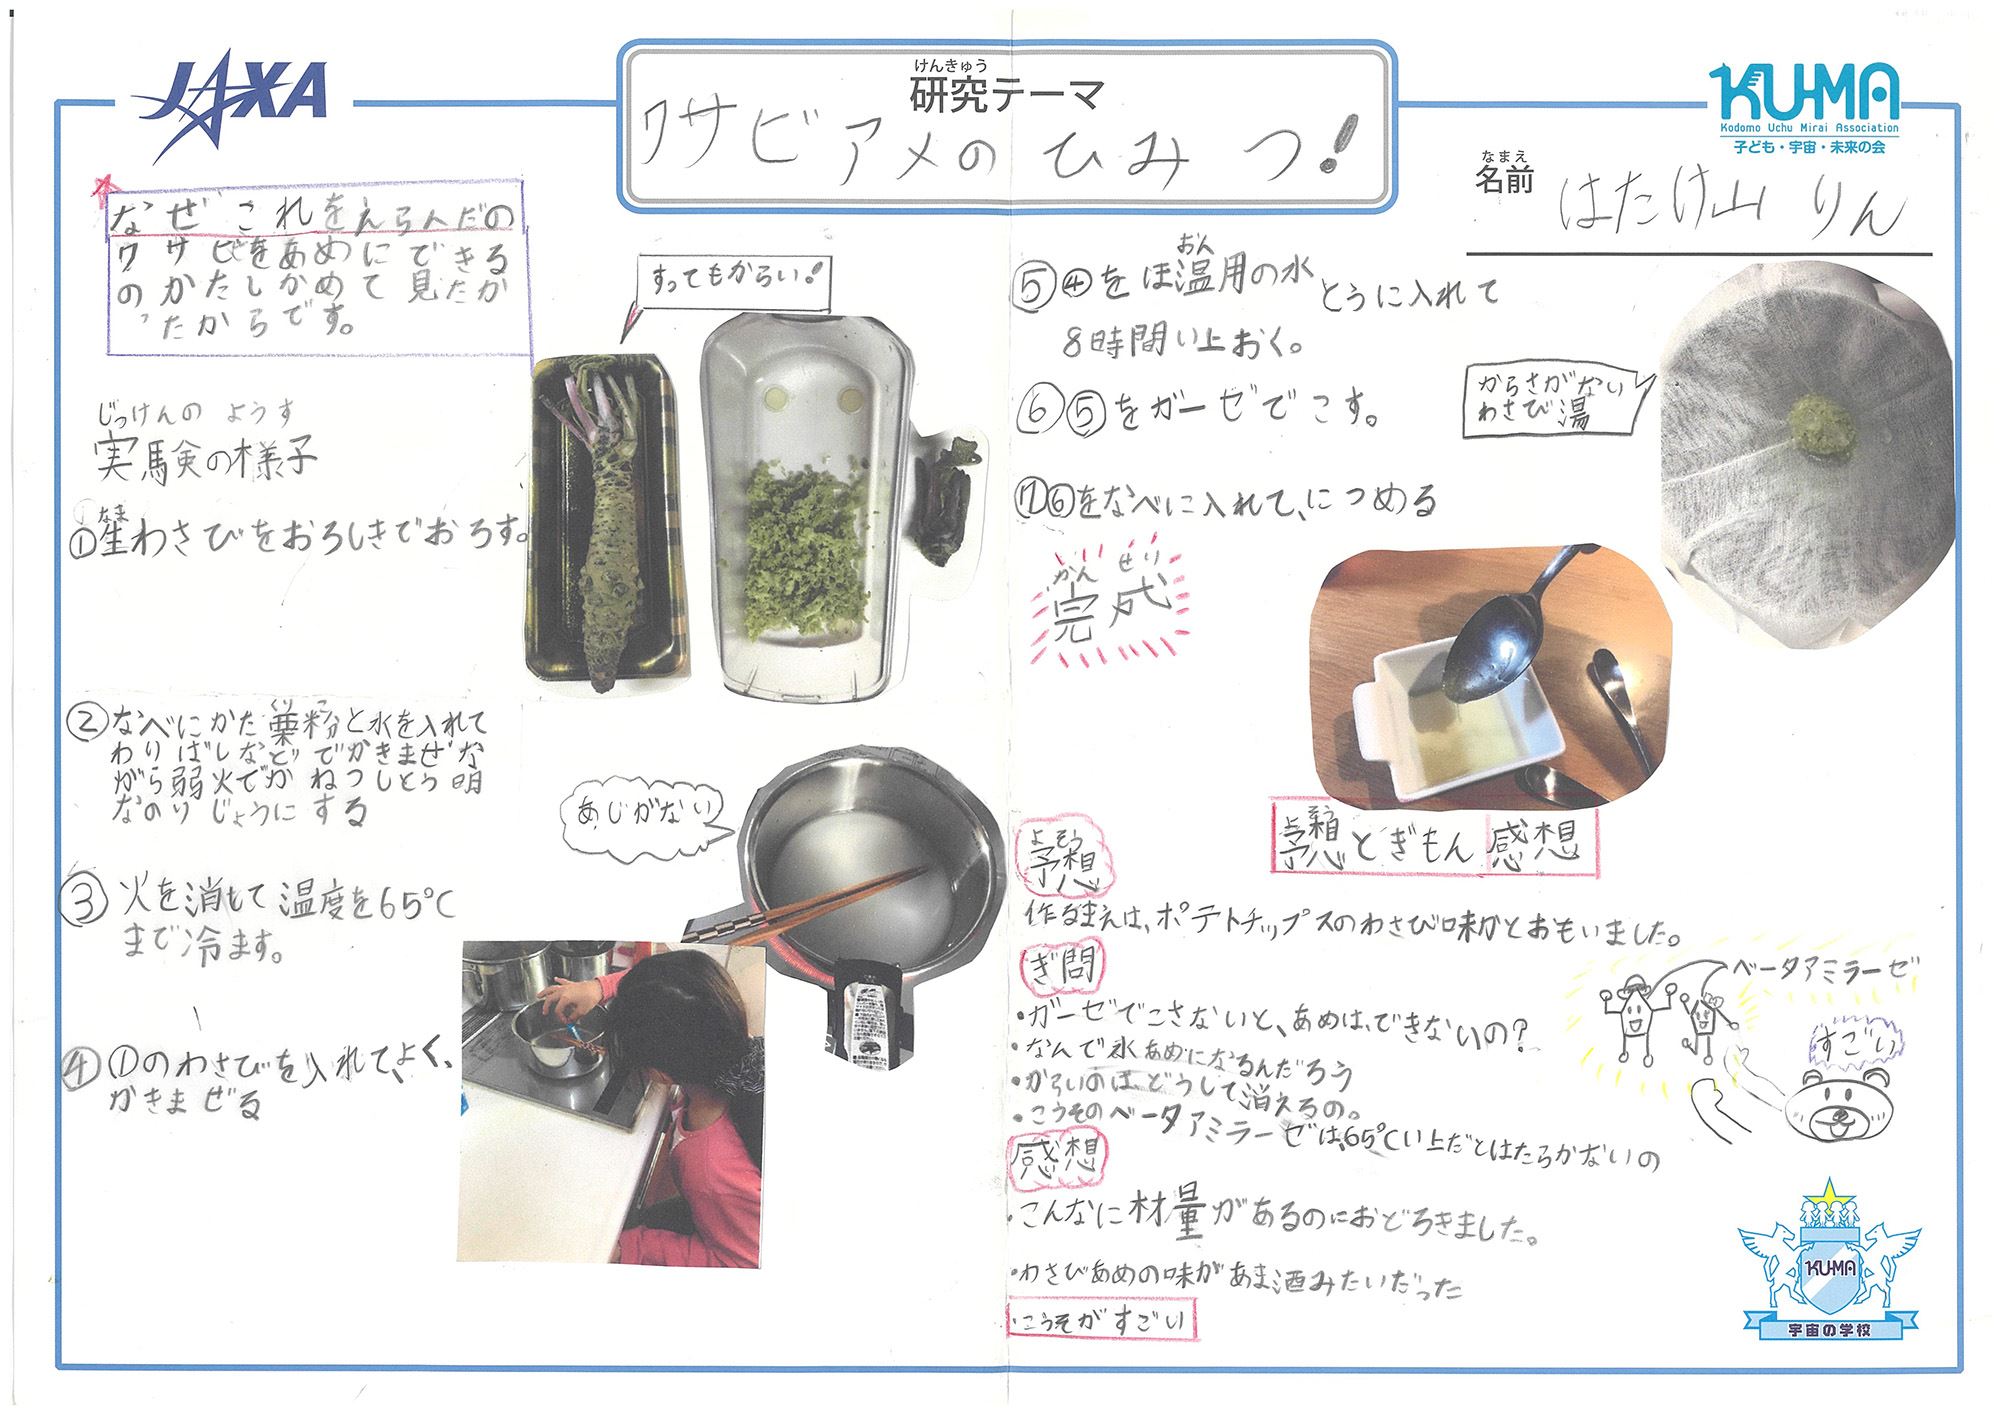 JAXA
けんきゅう
研究テーマ
ワサビアメのひみつ!
KU-MA
Kodomo Uchu Mirai Association
子ども・宇宙・未来の会
なまえ
名前
はたけ山 りん
なぜこれをえらんだの
ワサビをあめにできる
のかたしかめて見たか
ったからです。
すってもからい!
じっけんの ようす
実験の様子
なま
①生わさびをおろしきでおろす。
くり こ
②なべにかた栗粉と水を入れて
わりばしなどでかきまぜな
がら弱火でかねつしとう明
なのりじょうにする
あじがない
③火を消して温度を65℃
まで冷ます。
④①のわさびを入れて、よく、
かきまぜる
おん
⑤④をほ温用の水とうに入れて
8時間い上おく。
⑥⑤をガーゼでこす。
からさがない
わさび湯
⑦⑥をなべに入れて、につめる
かん せい
完成
予想とぎもん 感想
よそう
予想
作るまえは、ポテトチップスのわさび味かとおもいました。
ぎ問
・ガーゼでこさないと、あめは、できないの?
・なんで水あめになるんだろう
・からいのは、どうして消えるの。
・こうそのベータアミラーゼは、65℃い上だとはたらかないの
ベータアミラーゼ
すごい
感想
・こんなに材量があるのにおどろきました。
・わさびあめの味があま酒みたいだった
・こうそがすごい
KU-MA
宇宙の学校